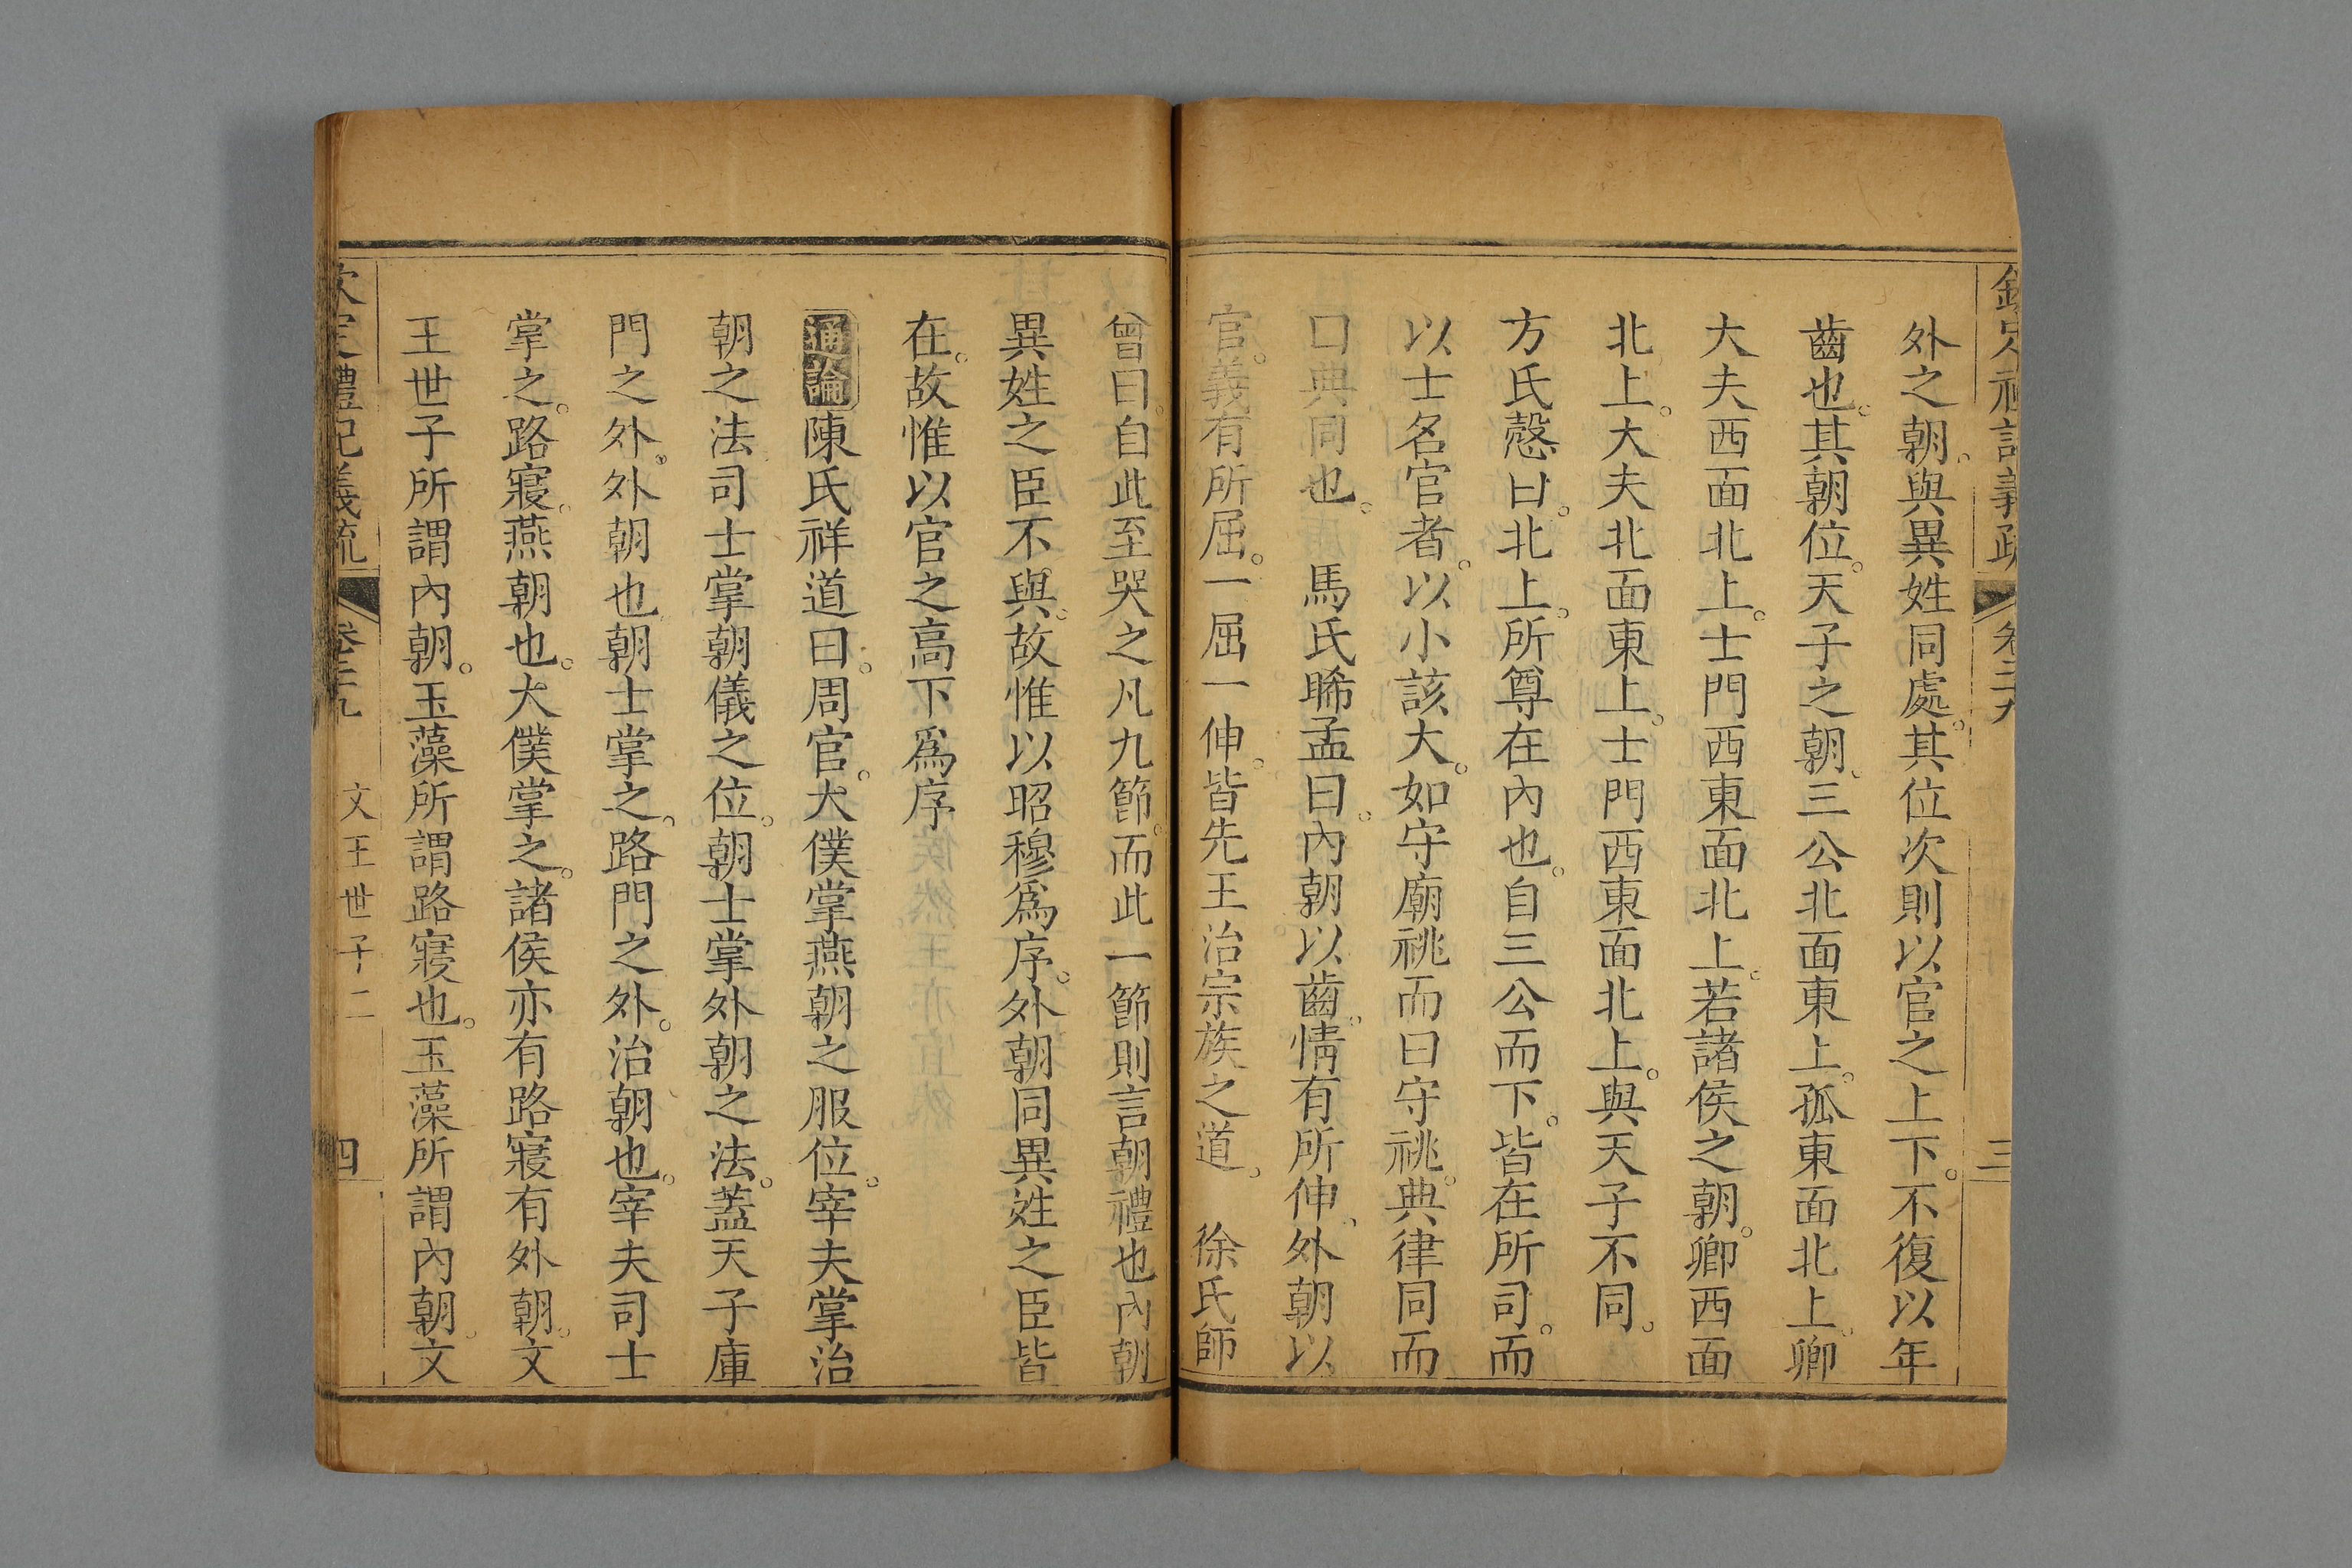 外之朝。與異姓同處。其位次則以官之上下。不復以年
齒也。其朝位。天子之朝、三公北面東上。孤東面北上。卿
大夫西面北上。士門西東面北上。若諸侯之朝。卿西面
北上。大夫北面東上。士門西東面北上。與天子不同。
方氏慤曰。北上。所尊在內也。自三公而下。皆在所司。而
以士名官者。以小該大。如守廟祧而曰守祧。典律同而
曰典同也。　馬氏睎孟曰。內朝以齒。情有所伸、外朝以
官。義有所屈。一屈一伸。皆先王治宗族之道。　徐氏師
曾曰。自此至哭之凡九節。而此一節則言朝禮也內朝
異姓之臣不與。故惟以昭穆爲序。外朝同異姓之臣皆
在。故惟以官之高下爲序
通論陳氏祥道曰。周官。大僕掌燕朝之服位。宰夫掌治
朝之法司士掌朝儀之位。朝士掌外朝之法。蓋天子庫
門之外。外朝也朝士掌之。路門之外。治朝也。宰夫司士
掌之。路寢。燕朝也。大僕掌之。諸侯亦有路寢有外朝。文
王世子所謂內朝。玉藻所謂路寢也。玉藻所謂內朝。文
欽定禮記義疏　卷三十九　文王世子二　四